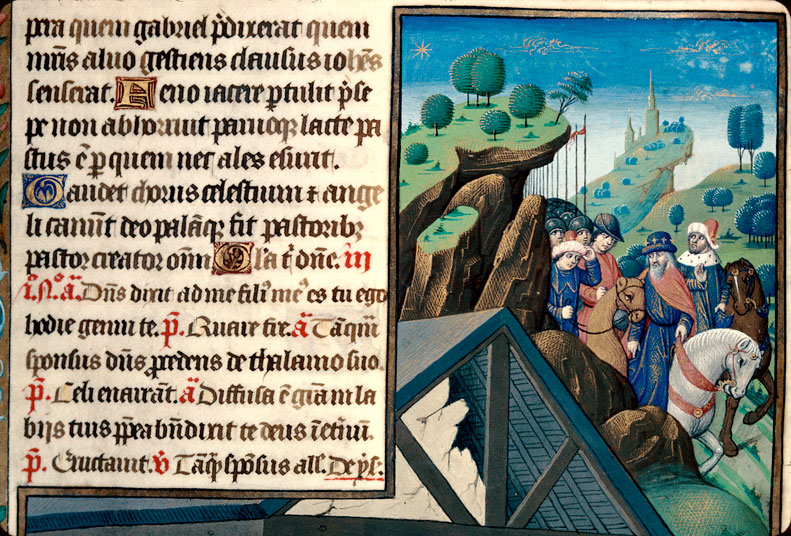 pera quem gabriel p̄dixerat quem
mr̄is aluo gestiens clausus iohēs
senserat. Feno iacere ꝑtulit p̄se
pe non abhorruit paruoqꝫ lacte pa
stus ē ꝑ quem nec ales esurit.
Gaudet chorus celestium ⁊ ange
li canūt deo palāqꝫ fit pastoribꝫ
pastor creator oīm Gl̄a t̄ dn̄e. in
i.° N.° a͞. Dn̄s dixit ad me fili⁹ me⁹ es tu ego
hodie genui te. p̄. Quare fre. a͞ Tāqm̄
sponsus dn̄s ꝓcedens de thalamo suo.
p̄. Celi enarrāt. a͞ Diffusa ē gr̄a in la
bijs tuis ꝓp̄ea bn̄dixit te deus ī et̄nū.
p̄. Eructauit. v̄ Tāqꝫ spōsus all̄. De ys.